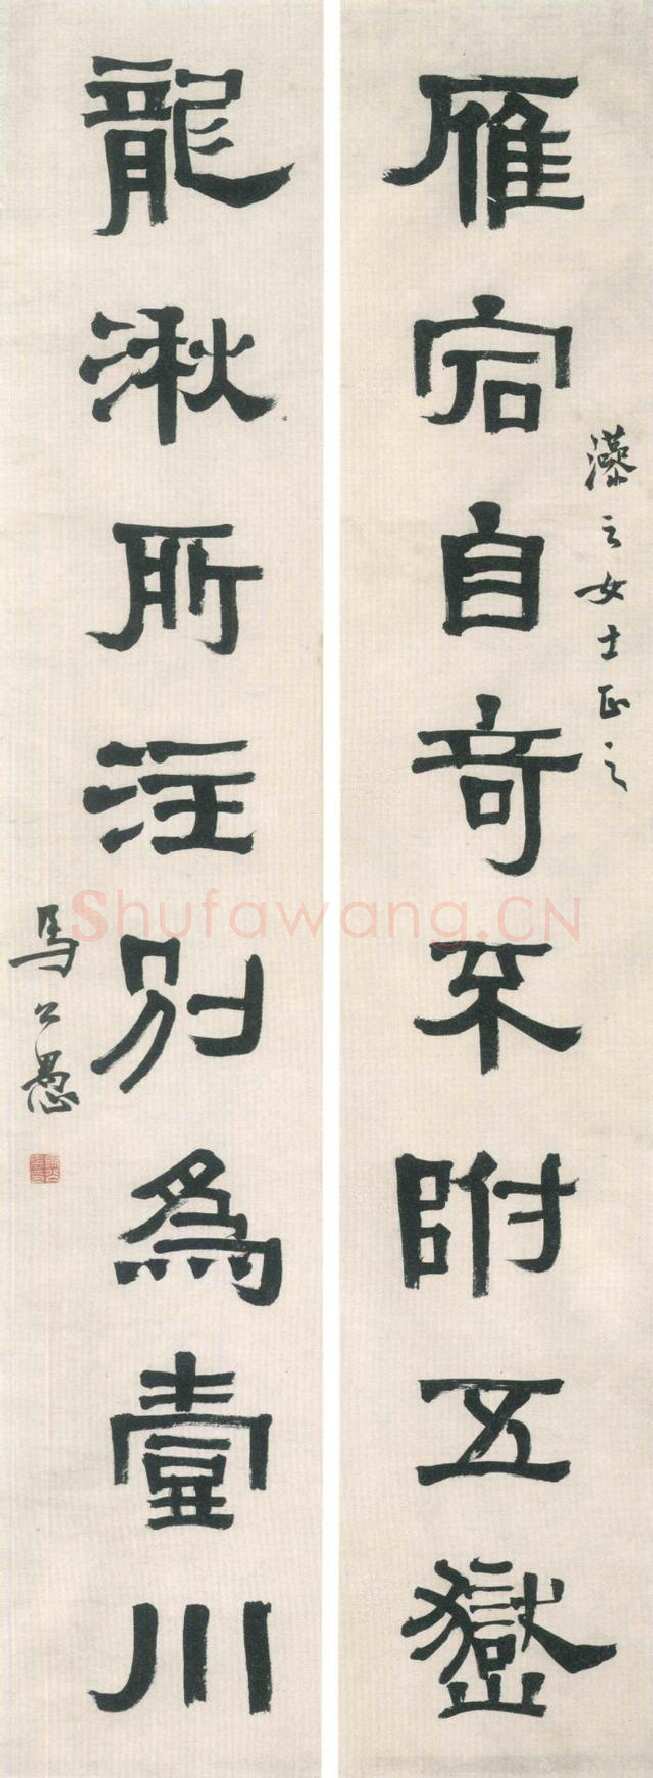 之女士正之
雁宕自奇不附五嶽
龍湫所注别為壹川
馬公愚
Shufawang.CN